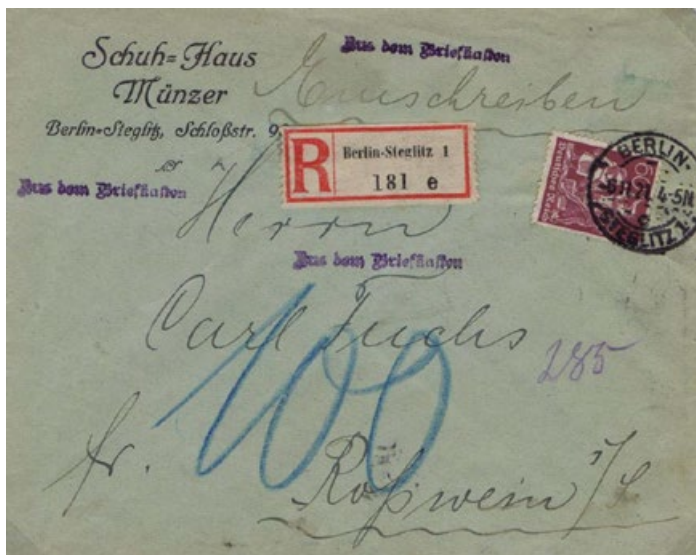 Schuh=Haus
Münzer
Berlin=Steglitz, Schloßstr. 9
Aus dem Briefkasten
Einschreiben
R
Berlin-Steglitz 1
181 e
BERLIN-
-8.11.21. 4-5N
STEGLITZ 1
Aus dem Briefkasten
Herrn
Aus dem Briefkasten
Carl Fuchs
100
285
fr.
Roßwein i/S